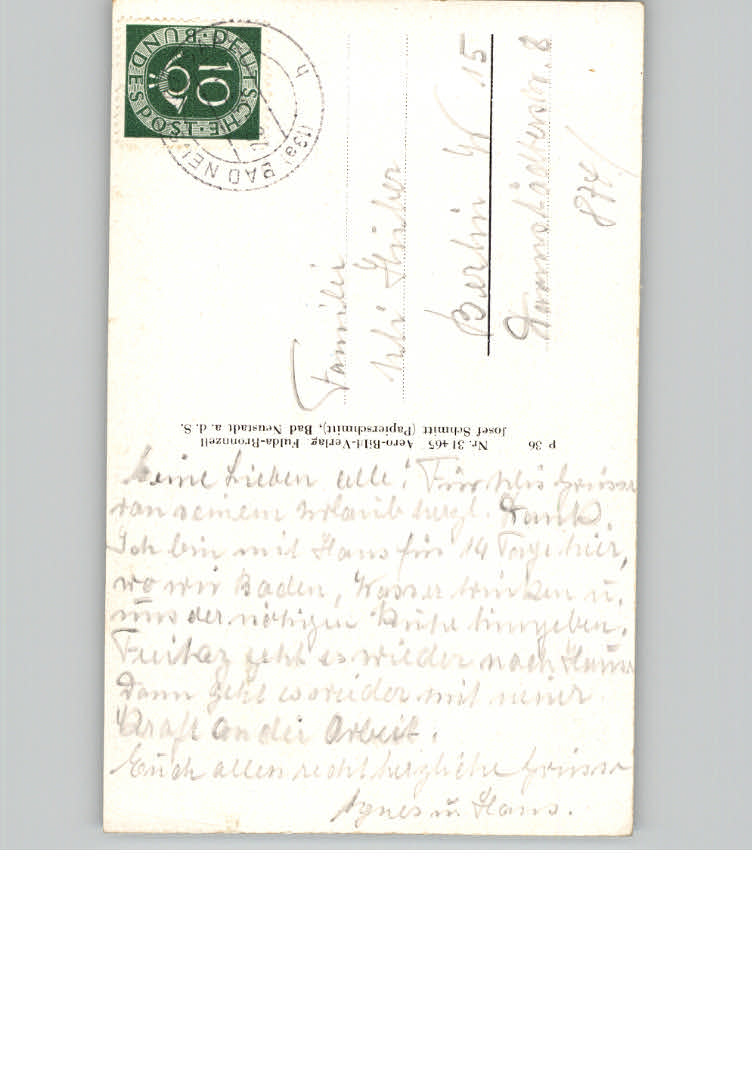 DEUTSCHE BUNDESPOST
10
BAD NEU
Familie
Huber
Berlin W 15
Darmstädterstr. 8
874/
P 36 Nr. 31465 Aero-Bild-Verlag Fulda-Bronnzell
Josef Schmitt (Papierschmitt), Bad Neustadt a. d. S.
Meine Lieben alle! Für Ulis Grüsse
von seinem Urlaub herzl. Dank.
Ich bin mit Hans für 14 Tage hier,
wo wir Baden, Wasser trinken u.
uns der nötigen Ruhe hingeben.
Freitag geht es wieder nach Haus
Dann geht es wieder mit neuer
Kraft an die Arbeit.
Euch allen recht herzliche Grüsse
Agnes u Hans.